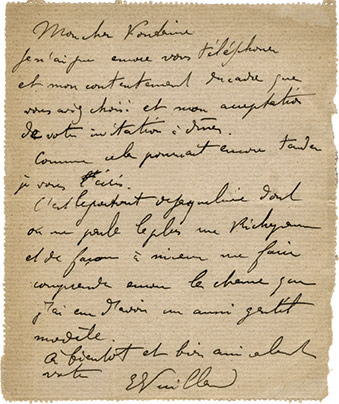 Mon cher Fontaine
Je n'ai pu encore vous téléphoner
et mon contentement du cadre que
vous avez choisi et mon acceptation
de votre invitation à dîner.
Comme cela pourrait encore tarder
je vous l'écris.
C'est le portrait de Jacqueline dont
on me parle le plus rue Richepanse
et de façon à mieux me faire
comprendre encore le charme que
j'ai eu d'avoir un aussi gentil
modèle.
à bientôt et bien amicalement
votre
E Vuillard